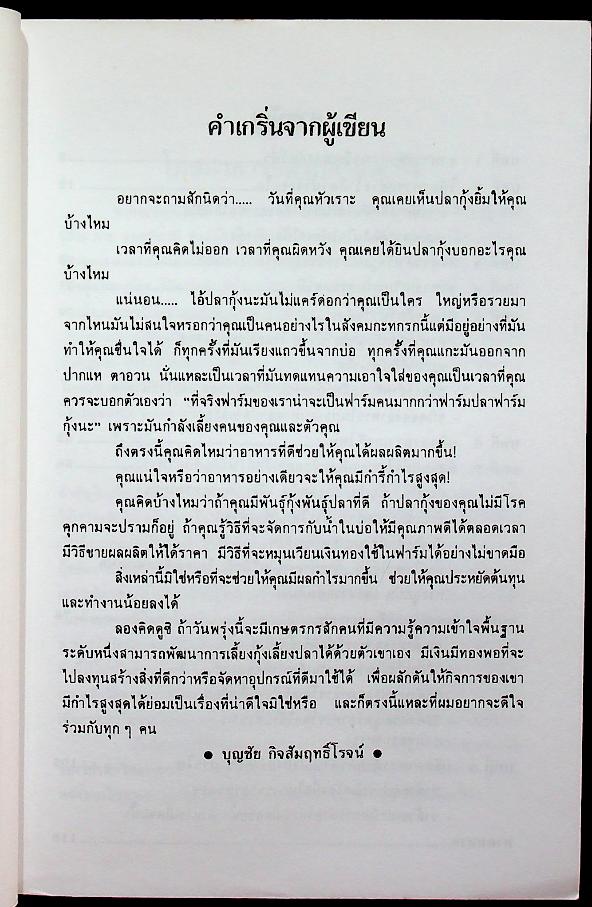 คำเกริ่นจากผู้เขียน
อยากจะถามสักนิดว่า..... วันที่คุณหัวเราะ คุณเคยเห็นปลากุ้งยิ้มให้คุณ
บ้างไหม
เวลาที่คุณคิดไม่ออก เวลาที่คุณผิดหวัง คุณเคยได้ยินปลากุ้งบอกอะไรคุณ
บ้างไหม
แน่นอน..... ไอ้ปลากุ้งนะมันไม่แคร์ดอกว่าคุณเป็นใคร ใหญ่หรือรวยมา
จากไหนมันไม่สนใจหรอกว่าคุณเป็นคนอย่างไรในสังคมกะทกรกนี้แต่มีอยู่อย่างที่มัน
ทำให้คุณชื่นใจได้ ก็ทุกครั้งที่มันเรียงแถวขึ้นจากบ่อ ทุกครั้งที่คุณแกะมันออกจาก
ปากแห ตาอวน นั่นแหละเป็นเวลาที่มันทดแทนความเอาใจใส่ของคุณเป็นเวลาที่คุณ
ควรจะบอกตัวเองว่า "ที่จริงฟาร์มของเราน่าจะเป็นฟาร์มคนมากกว่าฟาร์มปลาฟาร์ม
กุ้งนะ" เพราะมันกำลังเลี้ยงคนของคุณและตัวคุณ
ถึงตรงนี้คุณคิดไหมว่าอาหารที่ดีช่วยให้คุณได้ผลผลิตมากขึ้น!
คุณแน่ใจหรือว่าอาหารอย่างเดียวจะให้คุณมีกำรี้กำไรสูงสุด!
คุณคิดบ้างไหมว่าถ้าคุณมีพันธุ์กุ้งพันธุ์ปลาที่ดี ถ้าปลากุ้งของคุณไม่มีโรค
คุกคามจะปรามก็อยู่ ถ้าคุณรู้วิธีที่จะจัดการกับน้ำในบ่อให้มีคุณภาพดีได้ตลอดเวลา
มีวิธีขายผลผลิตให้ได้ราคา มีวิธีที่จะหมุนเวียนเงินทองใช้ในฟาร์มได้อย่างไม่ขาดมือ
สิ่งเหล่านี้มิใช่หรือที่จะช่วยให้คุณมีผลกำไรมากขึ้น ช่วยให้คุณประหยัดต้นทุน
และทำงานน้อยลงได้
ลองคิดดูซิ ถ้าวันพรุ่งนี้จะมีเกษตรกรสักคนที่มีความรู้ความเข้าใจพื้นฐาน
ระดับหนึ่งสามารถพัฒนาการเลี้ยงกุ้งเลี้ยงปลาได้ด้วยตัวเขาเอง มีเงินมีทองพอที่จะ
ไปลงทุนสร้างสิ่งที่ดีกว่าหรือจัดหาอุปกรณ์ที่ดีมาใช้ได้ เพื่อผลักดันให้กิจการของเขา
มีกำไรสูงสุดได้ย่อมเป็นเรื่องที่น่าดีใจมิใช่หรือ และก็ตรงนี้แหละที่ผมอยากจะดีใจ
ร่วมกับทุก ๆ คน
● บุญชัย กิจสัมฤทธิ์โรจน์ ●